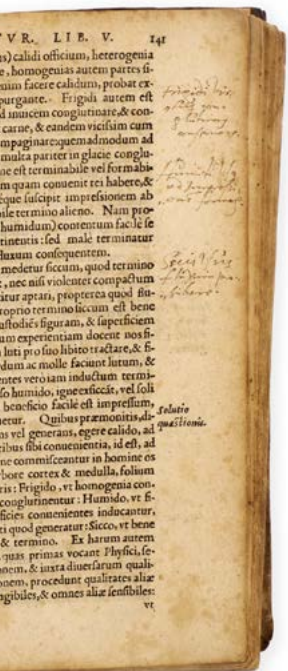 VR. LIB. V. 141
us) calidi officium, heterogenia
e, homogenias autem partes si-
uim facere calidum, probat ex-
purgante. Frigidi autem est
d inuicem conglutinare, & con-
carne, & eandem vicissim cum
mpaginare: quemadmodum ad
multa pariter in glacie conglu-
ne est terminabile vel formabi-
m quam conuenit rei habere, &
eque suscipit impressionem ab
ile termino alieno. Nam pro-
humidum) contentum facilè se
tinentis: sed malè terminatur
luxum consequentem.
medetur siccum, quod termino
, nec nisi violenter compactum
itur aptari, propterea quod flu-
roprio termino siccum est bene
ustodiés figuram, & superficiem
um experientiam docent nos fi-
luti pro suo libito tractare, & fi-
dum ac molle faciunt lutum, &
entes verò iam inductum termi-
so humido, igne exsiccāt, vel soli
beneficio facile est impressum,
netur. Quibus præmonitis, di-
ns vel generans, egere calido, ad
ibus sibi conuenientia, id est, ad
ne commisceantur in homine os
rbore cortex & medulla, folium
ris: Frigido, vt homogenia con-
conglutinentur: Humido, vt fi-
ficies conuenientes inducantur,
ti quod generatur: Sicco, vt bene
& termino. Ex harum autem
quas primas vocant Physici, se-
nem, & iuxta diuersarum quali-
onem, procedunt qualitates aliæ
ngibiles, & omnes aliæ sensibiles:
vt
Solutio
quæstionis.